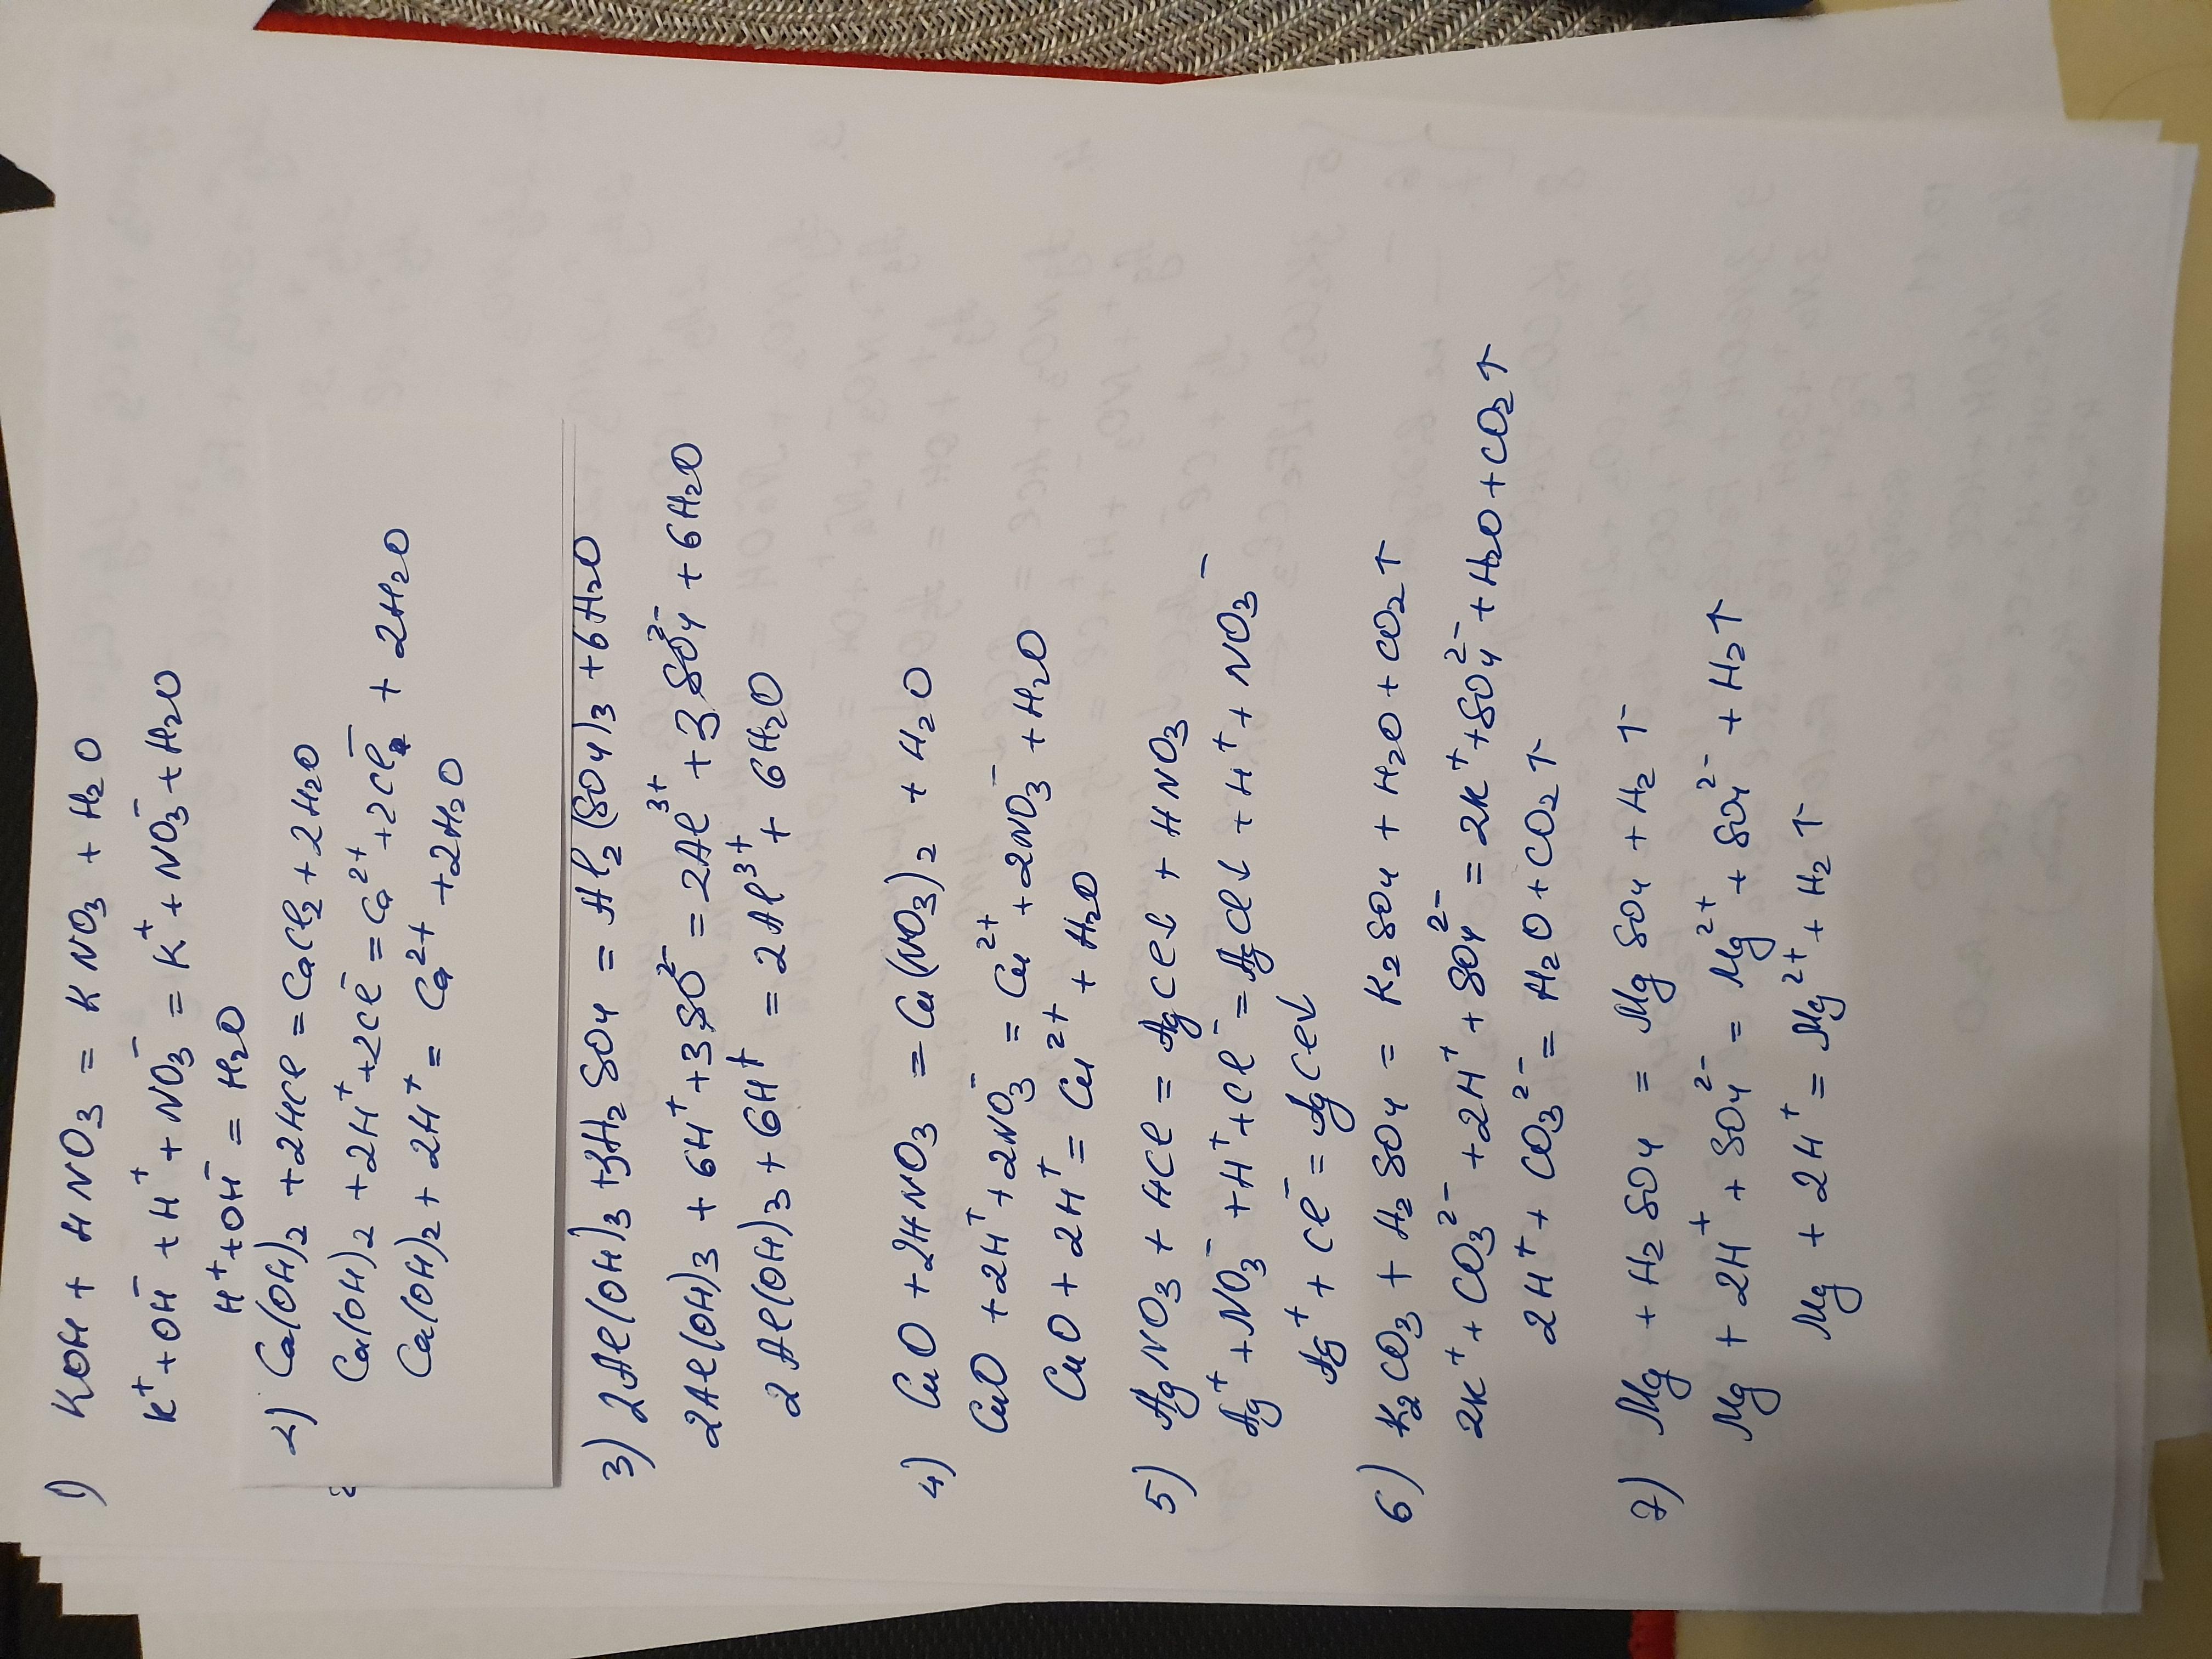 1) KOH + HNO3 = KNO3 + H2O
K⁺ + OH⁻ + H⁺ + NO3⁻ = K⁺ + NO3⁻ + H2O
H⁺ + OH⁻ = H2O
2) Ca(OH)2 + 2HCl = CaCl2 + 2H2O
Ca(OH)2 + 2H⁺ + 2Cl⁻ = Ca²⁺ + 2Cl⁻ + 2H2O
Ca(OH)2 + 2H⁺ = Ca²⁺ + 2H2O
3) 2Al(OH)3 + 3H2SO4 = Al2(SO4)3 + 6H2O
2Al(OH)3 + 6H⁺ + 3SO²⁻ = 2Al³⁺ + 3SO4²⁻ + 6H2O
2Al(OH)3 + 6H⁺ = 2Al³⁺ + 6H2O
4) CuO + 2HNO3 = Cu(NO3)2 + H2O
CuO + 2H⁺ + 2NO3⁻ = Cu²⁺ + 2NO3⁻ + H2O
CuO + 2H⁺ = Cu²⁺ + H2O
5) AgNO3 + HCl = AgCl↓ + HNO3
Ag⁺ + NO3⁻ + H⁺ + Cl⁻ = AgCl↓ + H⁺ + NO3⁻
Ag⁺ + Cl⁻ = AgCl↓
6) K2CO3 + H2SO4 = K2SO4 + H2O + CO2↑
2K⁺ + CO3²⁻ + 2H⁺ + SO4²⁻ = 2K⁺ + SO4²⁻ + H2O + CO2↑
2H⁺ + CO3²⁻ = H2O + CO2↑
7) Mg + H2SO4 = MgSO4 + H2↑
Mg + 2H⁺ + SO4²⁻ = Mg²⁺ + SO4²⁻ + H2↑
Mg + 2H⁺ = Mg²⁺ + H2↑